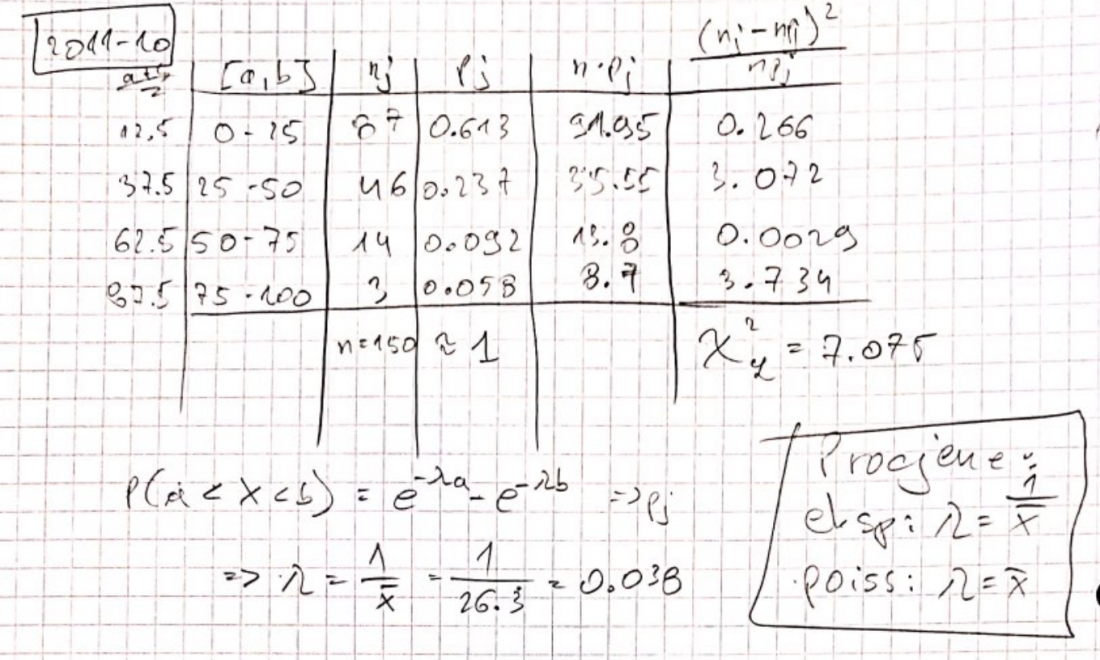 2011-10
a+b/2 [a,b] nj pj n·pj (nj-npj)²/npj
12.5 0-25 87 0.613 91.95 0.266
37.5 25-50 46 0.237 35.55 3.072
62.5 50-75 14 0.092 13.8 0.0029
87.5 75-100 3 0.058 8.7 3.734
n=150 ≈ 1 χ² = 7.075
P(a < X < b) = e^-λa - e^-λb => pj
=> λ = 1/x̄ = 1/26.3 = 0.038
Procjene:
eksp: λ = 1/x̄
poiss: λ = x̄